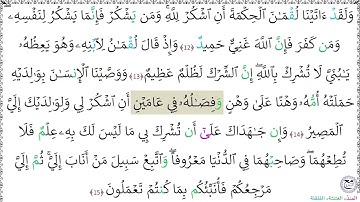 وَلَقَدۡ ءَاتَيۡنَا لُقۡمَٰنَ ٱلۡحِكۡمَةَ أَنِ ٱشۡكُرۡ لِلَّهِۚ وَمَن يَشۡكُرۡ فَإِنَّمَا يَشۡكُرُ لِنَفۡسِهِۦۖ
وَمَن كَفَرَ فَإِنَّ ٱللَّهَ غَنِيٌّ حَمِيدٞ (12) وَإِذۡ قَالَ لُقۡمَٰنُ لِٱبۡنِهِۦ وَهُوَ يَعِظُهُۥ
يَٰبُنَيَّ لَا تُشۡرِكۡ بِٱللَّهِۖ إِنَّ ٱلشِّرۡكَ لَظُلۡمٌ عَظِيمٞ (13) وَوَصَّيۡنَا ٱلۡإِنسَٰنَ بِوَٰلِدَيۡهِ
حَمَلَتۡهُ أُمُّهُۥ وَهۡنًا عَلَىٰ وَهۡنٖ وَفِصَٰلُهُۥ فِي عَامَيۡنِ أَنِ ٱشۡكُرۡ لِي وَلِوَٰلِدَيۡكَ إِلَيَّ
ٱلۡمَصِيرُ (14) وَإِن جَٰهَدَاكَ عَلَىٰٓ أَن تُشۡرِكَ بِي مَا لَيۡسَ لَكَ بِهِۦ عِلۡمٞ فَلَا
تُطِعۡهُمَاۖ وَصَاحِبۡهُمَا فِي ٱلدُّنۡيَا مَعۡرُوفٗاۖ وَٱتَّبِعۡ سَبِيلَ مَنۡ أَنَابَ إِلَيَّۚ ثُمَّ إِلَيَّ
مَرۡجِعُكُمۡ فَأُنَبِّئُكُم بِمَا كُنتُمۡ تَعۡمَلُونَ (15)